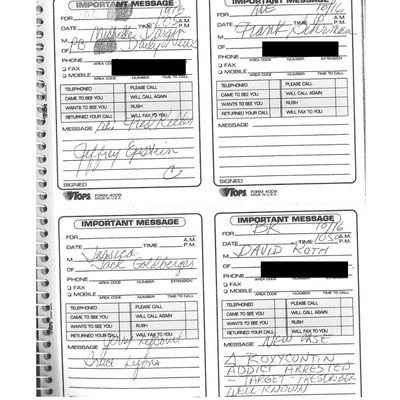 IMPORTANT MESSAGE
FOR
DATE 10/16 TIME 1:05 A.M. P.M.
M Michele Dargan
OF PB Daily News
PHONE
AREA CODE NUMBER EXTENSION
FAX
MOBILE
AREA CODE NUMBER TIME TO CALL
TELEPHONED PLEASE CALL
CAME TO SEE YOU WILL CALL AGAIN
WANTS TO SEE YOU RUSH
RETURNED YOUR CALL WILL FAX TO YOU
MESSAGE
Jeffrey Epstein
SIGNED
TOPS FORM 4009
MADE IN U.S.A.
IMPORTANT MESSAGE
FOR 10/16
DATE TIME A.M. P.M.
M Frank
OF
PHONE
AREA CODE NUMBER EXTENSION
FAX
MOBILE
AREA CODE NUMBER TIME TO CALL
TELEPHONED PLEASE CALL
CAME TO SEE YOU WILL CALL AGAIN
WANTS TO SEE YOU RUSH
RETURNED YOUR CALL WILL FAX TO YOU
MESSAGE
SIGNED
TOPS FORM 4009
MADE IN U.S.A.
IMPORTANT MESSAGE
FOR
DATE TIME A.M. P.M.
M Jessica
OF Jack Goldberger
PHONE
FAX
MOBILE
AREA CODE NUMBER EXTENSION
AREA CODE NUMBER TIME TO CALL
TELEPHONED PLEASE CALL
CAME TO SEE YOU WILL CALL AGAIN
WANTS TO SEE YOU RUSH
RETURNED YOUR CALL WILL FAX TO YOU
MESSAGE
Bruce Lyons
IMPORTANT MESSAGE
FOR BK 10/16
DATE TIME 10:30 A.M. P.M.
M DAVID ROTH
OF
PHONE
FAX
MOBILE
AREA CODE NUMBER EXTENSION
AREA CODE NUMBER TIME TO CALL
TELEPHONED PLEASE CALL
CAME TO SEE YOU WILL CALL AGAIN
WANTS TO SEE YOU RUSH
RETURNED YOUR CALL WILL FAX TO YOU
MESSAGE NEW CASE
ROXYCONTIN
ADDICT ARRESTED
- TARGET - PRESCRIBER
WELL-KNOWN